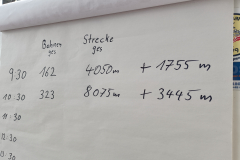 Bahnen Strecke
ges ges
9:30 162 4050m + 1755 m
10:30 323 8075m + 3445 m
11:30
12:30
13:30